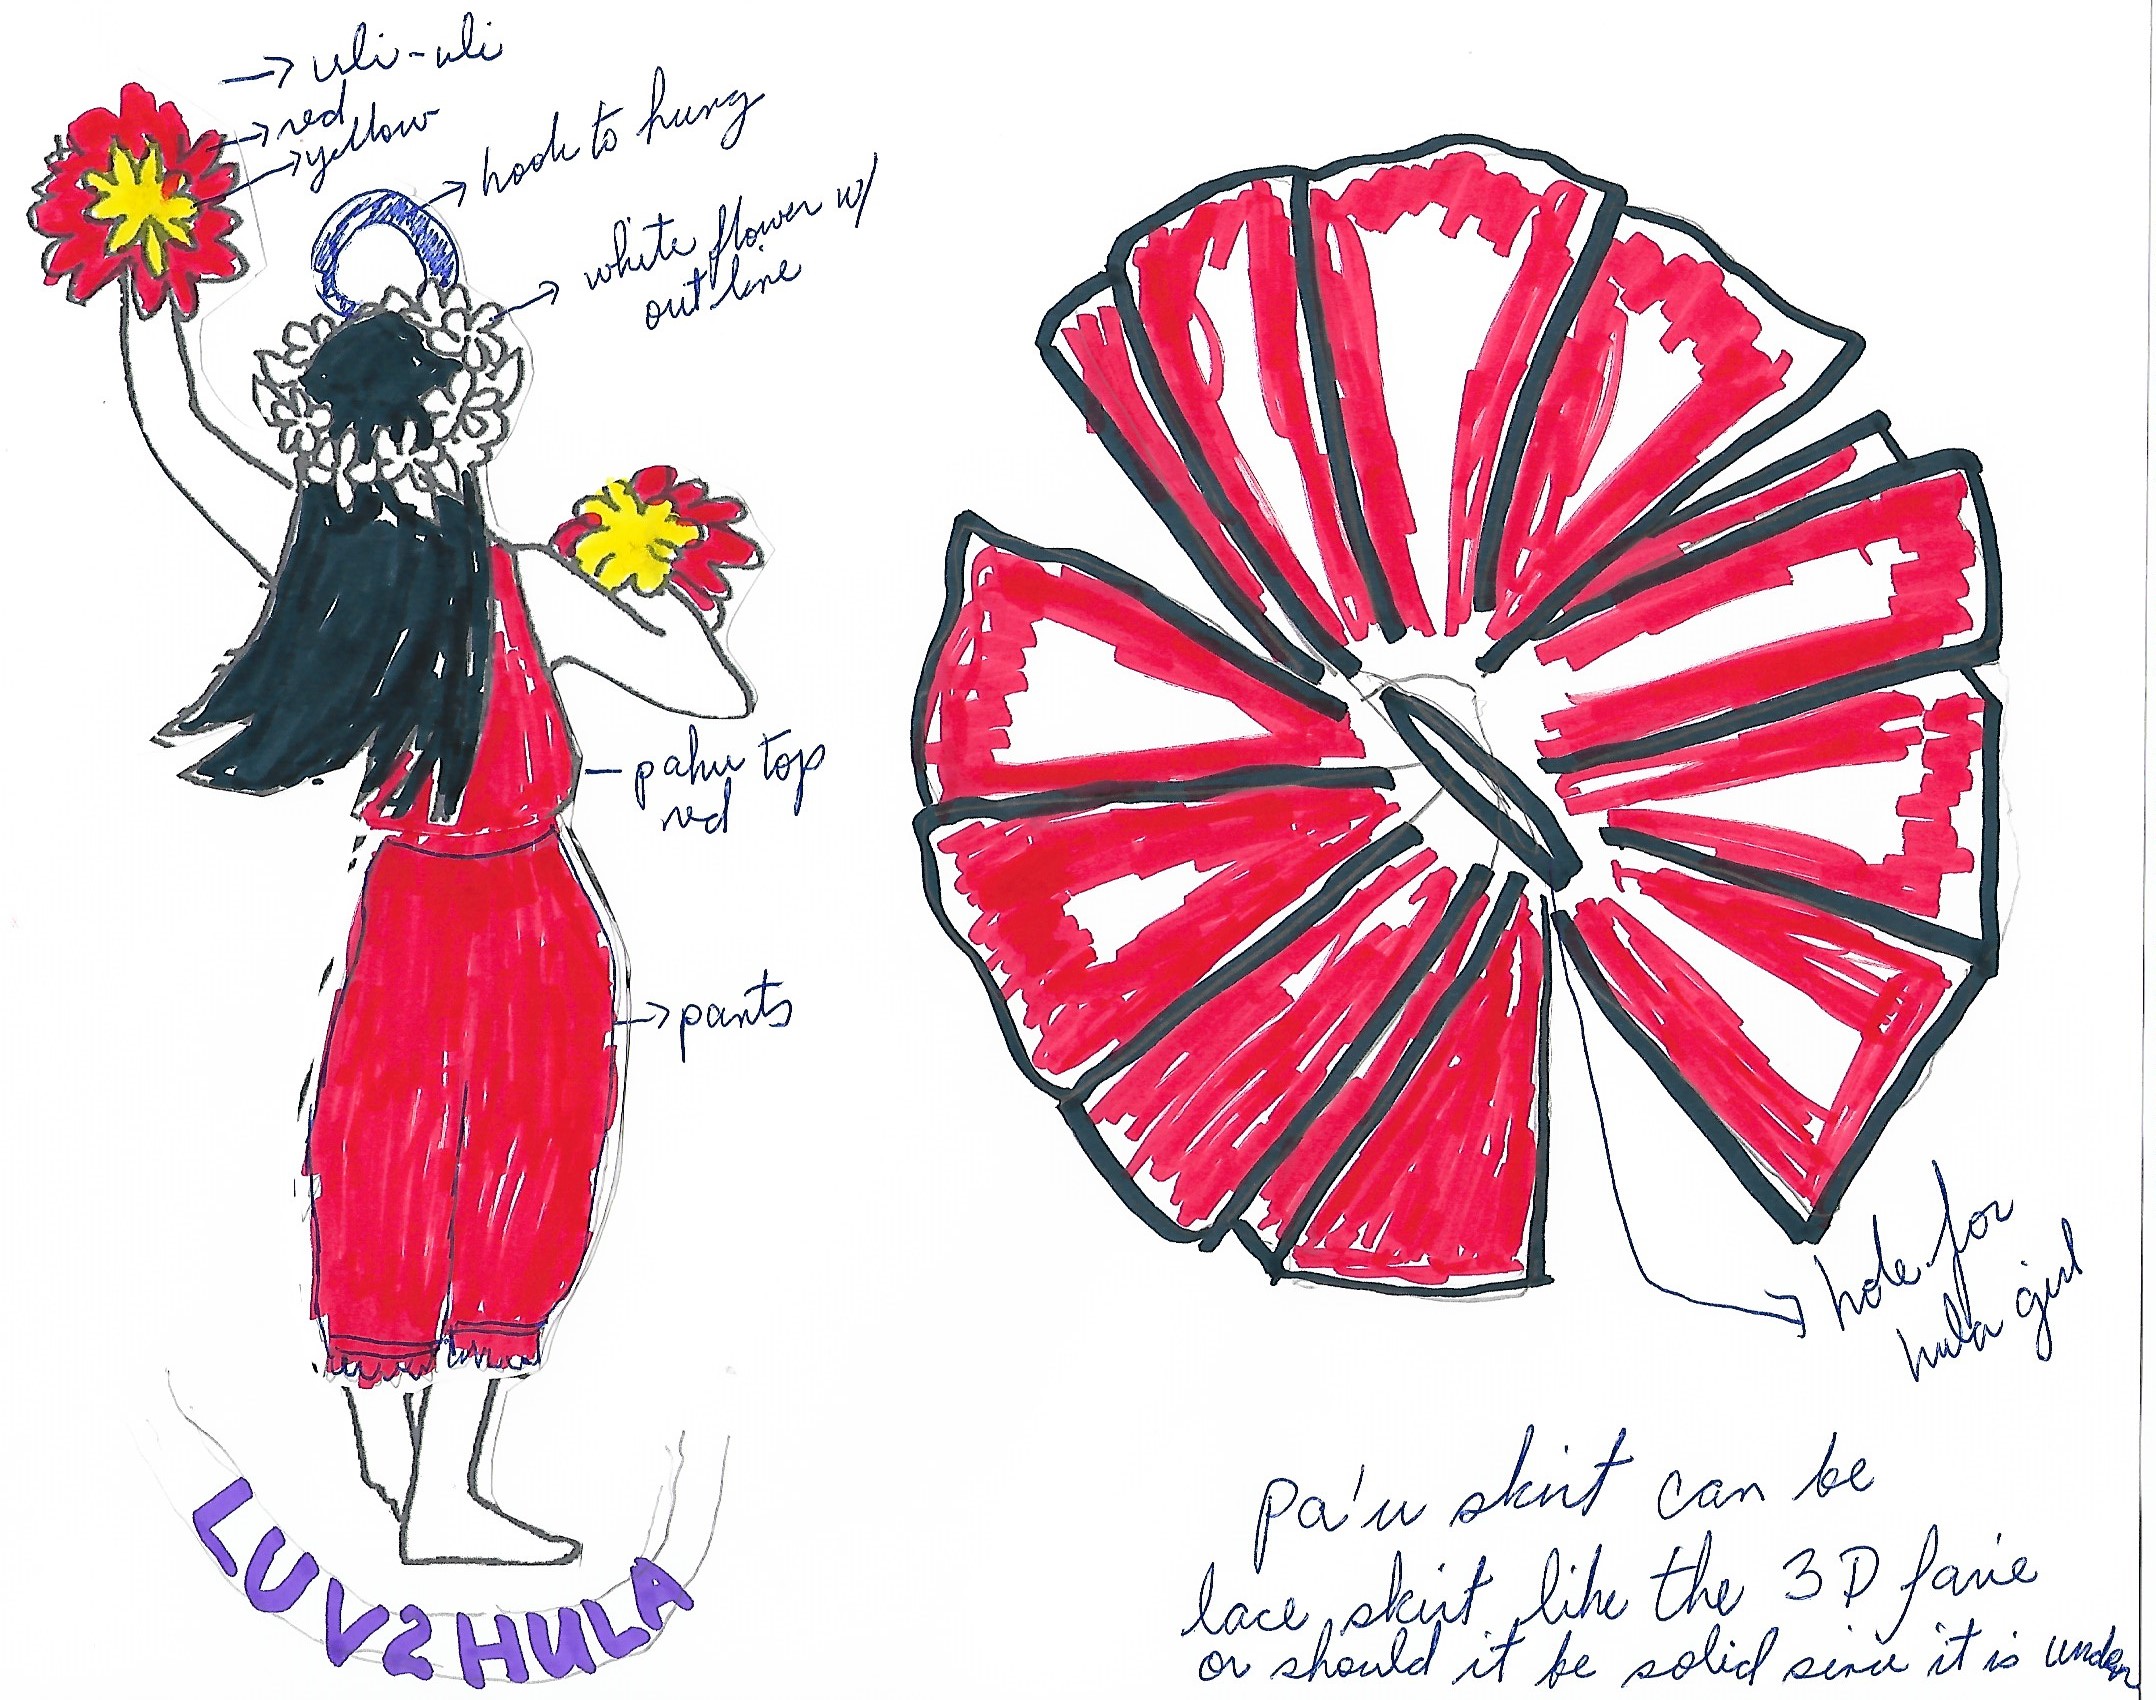 → uli-uli
→ red
→ yellow
→ hook to hung
→ white flower w/
out line
- pahu top
red
→ pants
LUV2HULA
→ hole for
hula girl
pa'u skirt can be
lace skirt like the 3D farie
or should it be solid since it is under